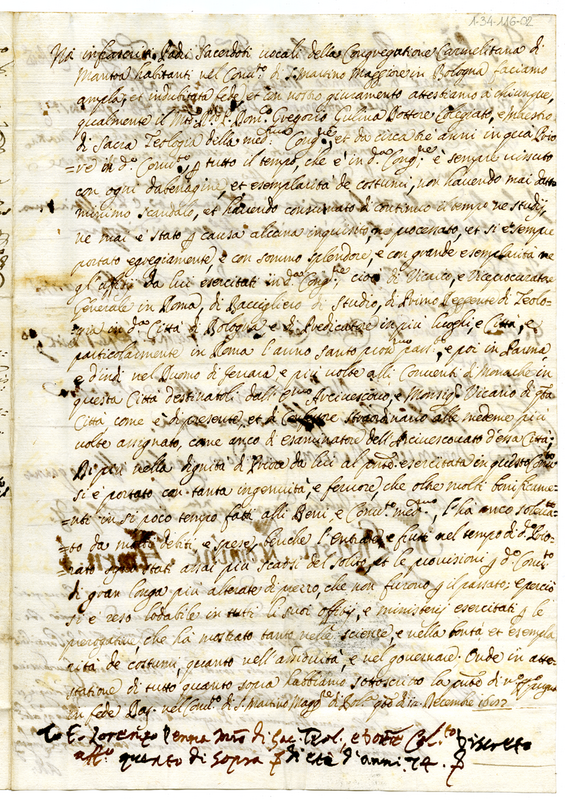 1-34-116-02
Noi infrascritti Padri Sacerdoti vocali della Congregatione Carmelitana di
Mantoa habitanti nel Conv.to di S. Martino Maggiore in Bologna facciamo
ampla, et indubitata fede, et con nostro giuramento attestiamo à chiunque,
qualmente il Gregorio Dottore Colegiato, e Maestro
di Sacra Teologia della med.ma Cong.ne, et da circa tre anni in qua Prio
=re in d.o Conv.to, p tutto il tempo, che è in d.a Cong.ne è sempre vissuto
con ogni et esemplarità de costumi, non havendo mai dato
minimo scandalo, et havendo consumato di continuo il tempo ne studij,
ne mai è stato p causa alcuna inquisito, ne pocessato, et si è sempre
portato egregiamente, e con sommo splendore, e con grande esemplarità ne
gl'offitij da lui esercitati in d.a Cong.ne cioè di Vicario, e Viceprocurator
Generale in Roma, di Bacigliero di Studio, di Primo Regente di Teolo-
gia in d.a Città di Bologna e di Predicatore in più luoghi, e Città, e
particolarmente in Roma l'anno Santo pass., e poi in Parma
e d'indi nel Duomo di ferara, e più volte alli Conventi di Monache in
questa Città destinatoli dall' Arcivescovo, e Monsig.r Vicario di q.ta
Città, come è di presente, et di Confessore straordinario alle medeme più
volte assignato, come anco di esaminatore dell'Arcivescovato d'essa Città;
Di più nella dignità di Priore da lui al p.nte esercitata in questo Conv.to
si è portato con tanta ingenuità, e fervore, che oltre molti bonificame-
=nti in sì poco tempo fatti alli Beni, e Conv.to med.mo, l'hà anco soleva-
=to da molti debiti, e spese, benche l'Entrade, e frutti nel tempo di d.o Prio-
rato assai più scarsi del solito, et le provisioni p d.o Conv.to
di gran longa più alterate di prezzo, che non furono p il passato; e perciò
si è reso lodabile in tutti li suoi offitij, e ministerij esercitati p le
prerogative, che hà mostrato tanto nelle scienze, e nella bontà et esempla
rità de costumi, quanto nell'assiduità, e nel governare. Onde in atte-
statione di tutto quanto sopra habbiamo sottoscritto la p.nte di
in fede Dat. nel Conv.to di S. Martino Magg.re di Bol.a q.to dì 12 Decembre
Io F. Lorenzo Penna M.ro di Sac. Teol. e Dott. Col.to Discreto
aff.o quanto di sopra di età d'anni 74.